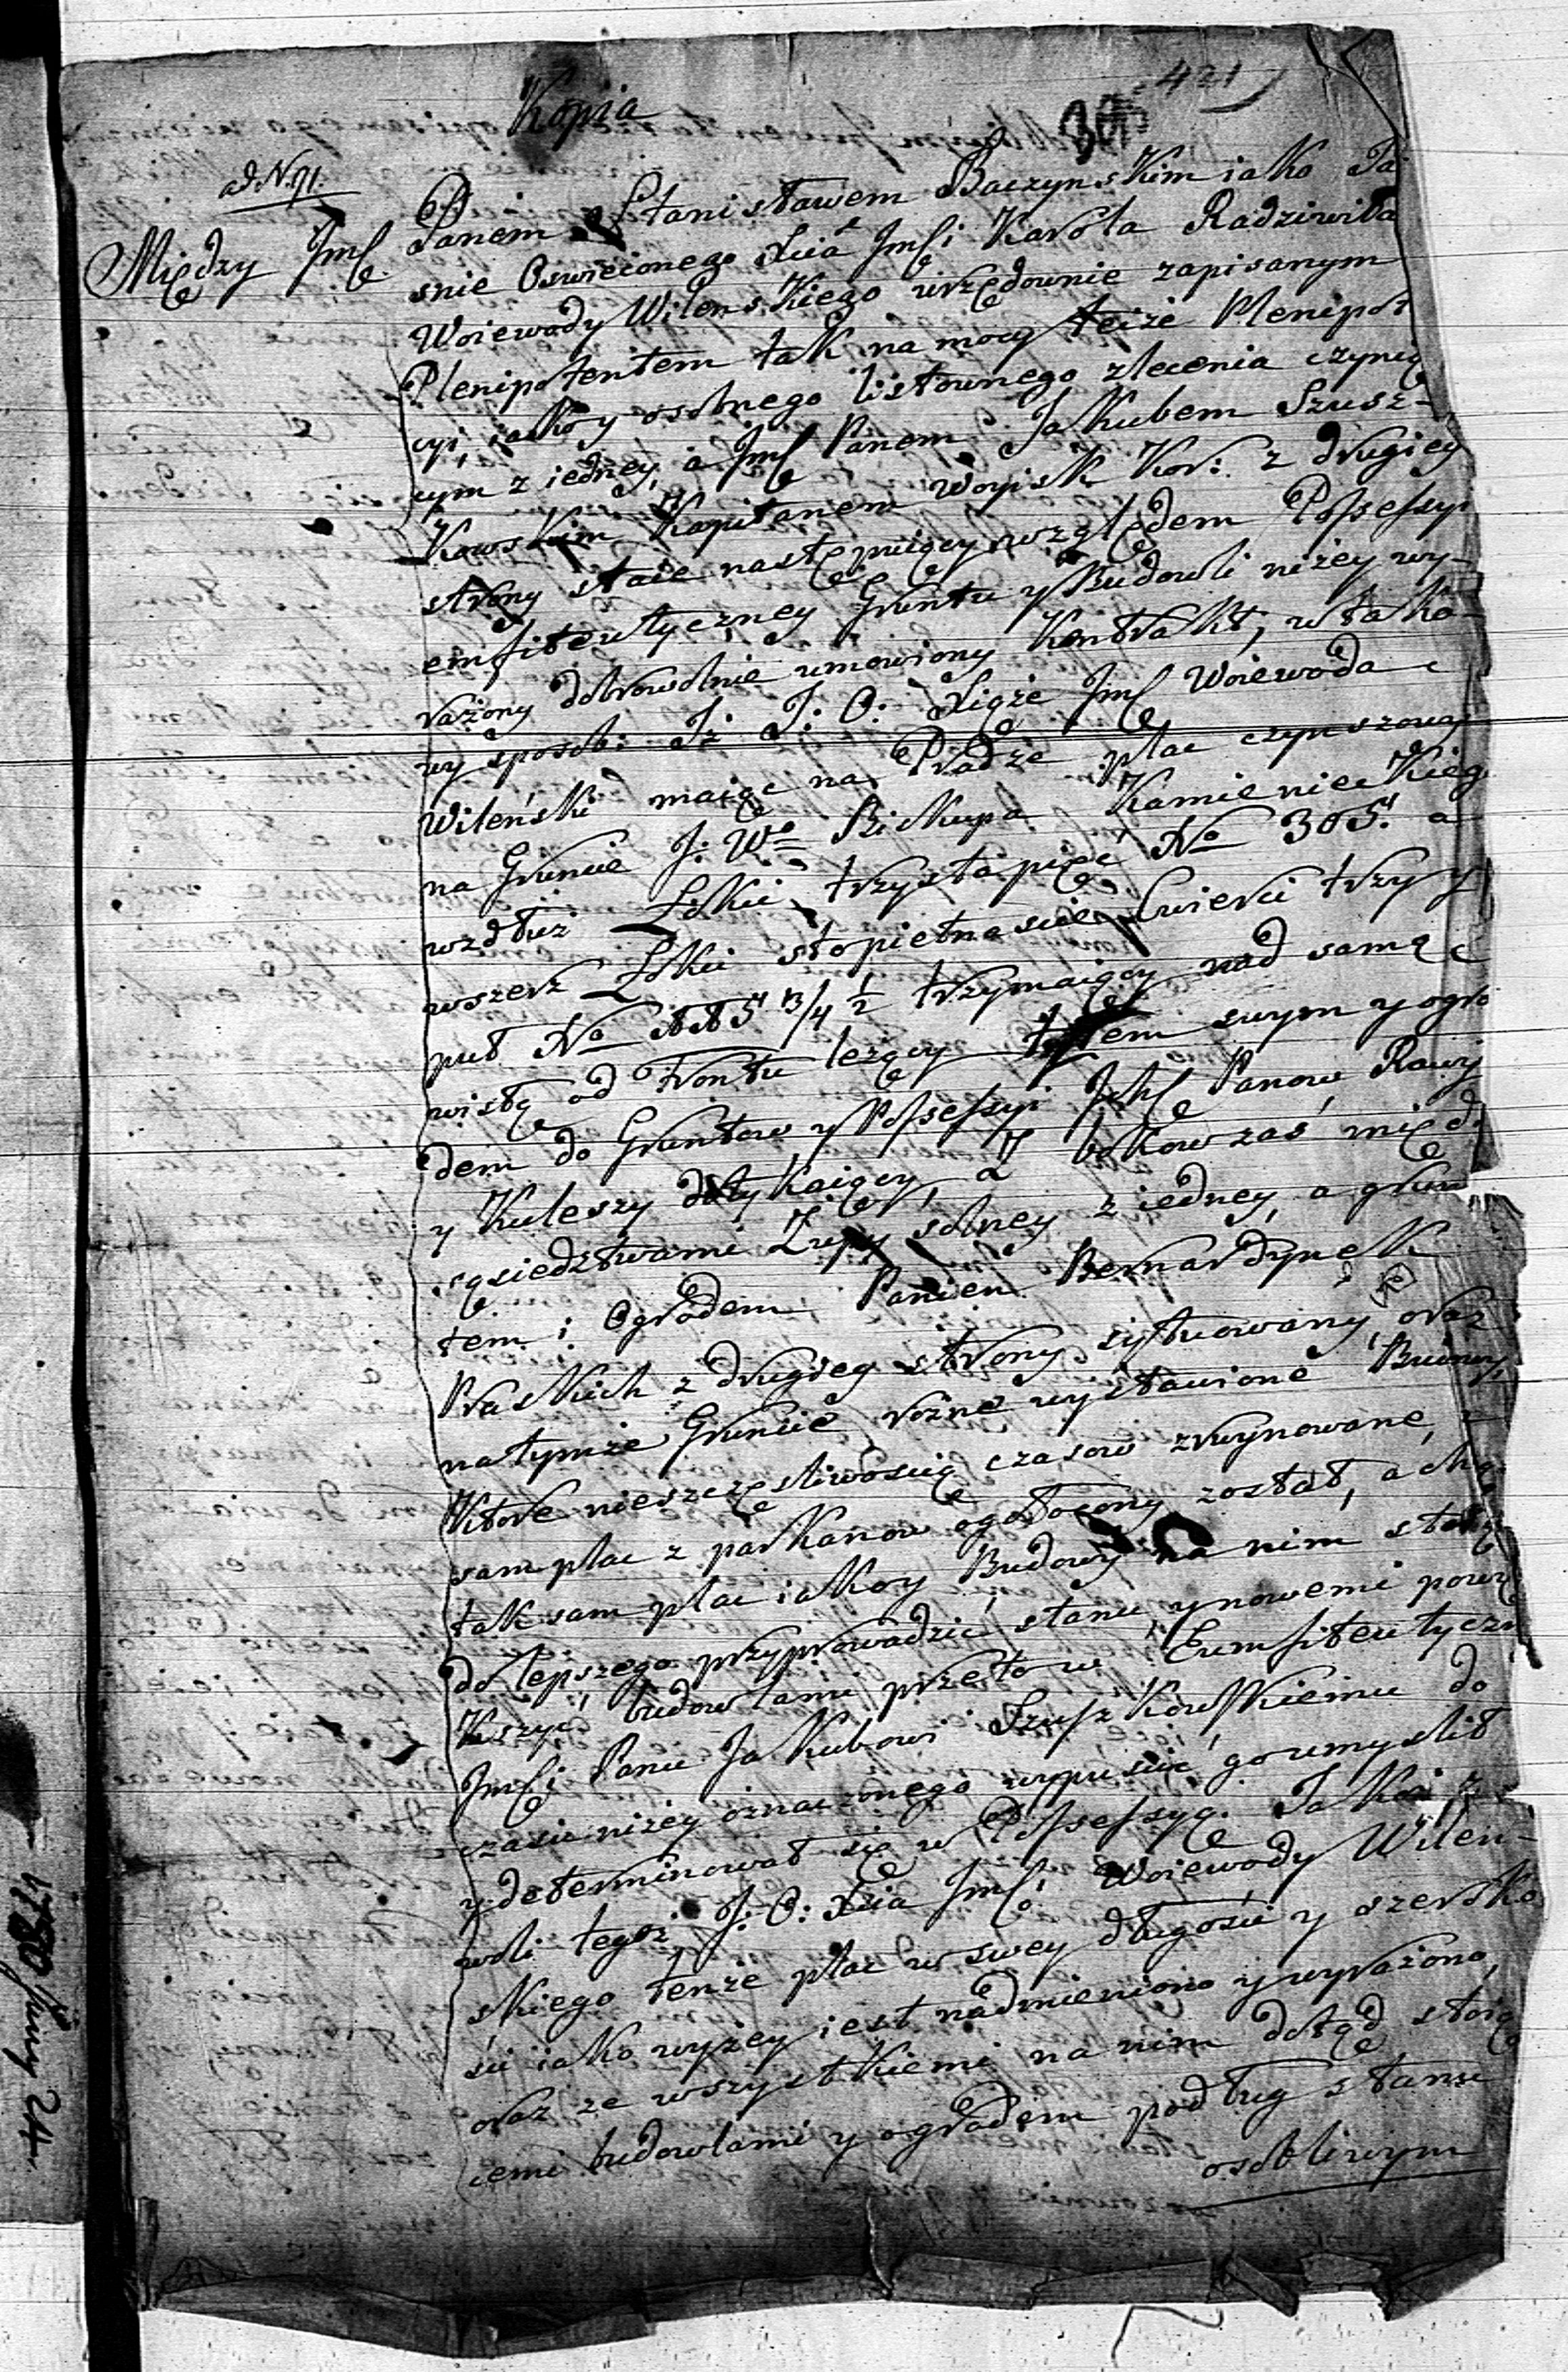 421
Kopia
30
ad N. 91.
Między Jmę Panem Stanisławem Baczynskim iako Ja
snie Oswieconego Xcia Jmści Karola Radziwiła
Woiewody Wilenskiego urzędownie zapisanym
Plenipotentem tak na mocy teize Plenipot
cyi, iako y osobnego listownego zlecenia czynią
cym z iedney, a Jmę Panem Jakubem Szusz-
kowskim Kapitanem Woysk Kor: z drugiey
strony staie następuiący względem Possessyi
emfiteutyczney Gruntu y Budowli niżey wy-
rażony dobrowolnie umowiony Kontrakt, w tako
wy sposob: Iż J: O: Xiąże Jmę Woiewoda
Wileński maiąc na Pradze plac czynszowy
na Gruncie J: Wo Biskupa Kamienieckieg
wzdłuż Łokci trzysta pięć No 305. a
wszerz Łokci stopietnascie Cwierci trzy y
puł No 115 3/4 ½ trzymaiący nad samą
wisłą od Frontu leżący tyłem swym y ogro
dem do Gruntow y Possessyi Jchę Panow Rawy
y Kuleszy dotykaiący, a Z bokow zaś międ
sąsiedztwami Zupy solney z iedney, a grun
tem i Ogrodem Panien Bernardynek
Praskich z drugiey strony sytuowany, oraz
na tymże Gruncie rożne wystawione Budowy,
Ktore nieszczęsliwoscią czasow zruynowane,
sam plac z parkanow ogołocony został, a chcą
tak sam plac iako y Budowy na nim stoią
do lepszego przyprowadzic stanu, y nowemi powię
kszyć budowlami przeto w Eumfiteutyczn
Jmści Panu Jakubowi Szuszkowskiemu do
czasu niżey oznaczonego wypuścić go umyslił
y determinował się w Possessyą. Jakoż z
woli tegoż J: O: Xcia Jmści Woiewody Wilen-
skiego tenże plac w swey długości y szeroko
ści iako wyżey iest nadmieniono y wyrażono,
oraz ze wszystkiemi na nim dotąd stoią
cemi budowlami y ogrodem podług stanu
osobliwym
1780 Juny 24.